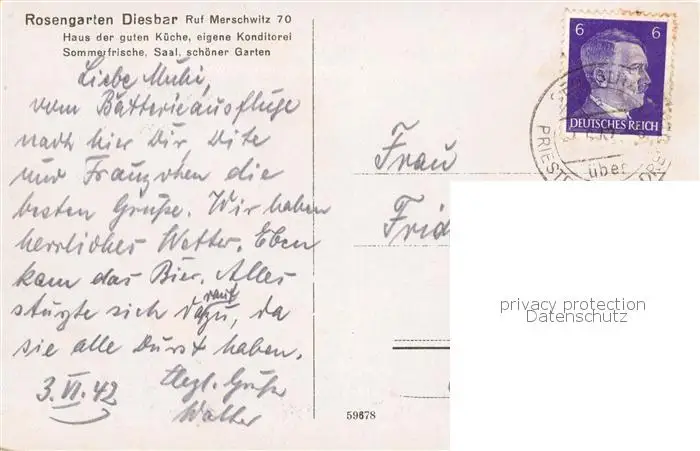 Rosengarten Diesbar Ruf Merschwitz 70
Haus der guten Küche, eigene Konditorei
Sommerfrische, Saal, schöner Garten
Liebe Muhi,
vom Batterieausfluge
nach hier Dir, Dite
und die
besten Grüße. Wir haben
herrliches Wetter. Eben
kam das Bier. Alles
stürzte sich rauf, da
sie alle Durst haben.
3. VI. 42
Hrzl. Grüße
Walter
59678
6 6
DEUTSCHES REICH
über
Frau
Frid
privacy protection
Datenschutz